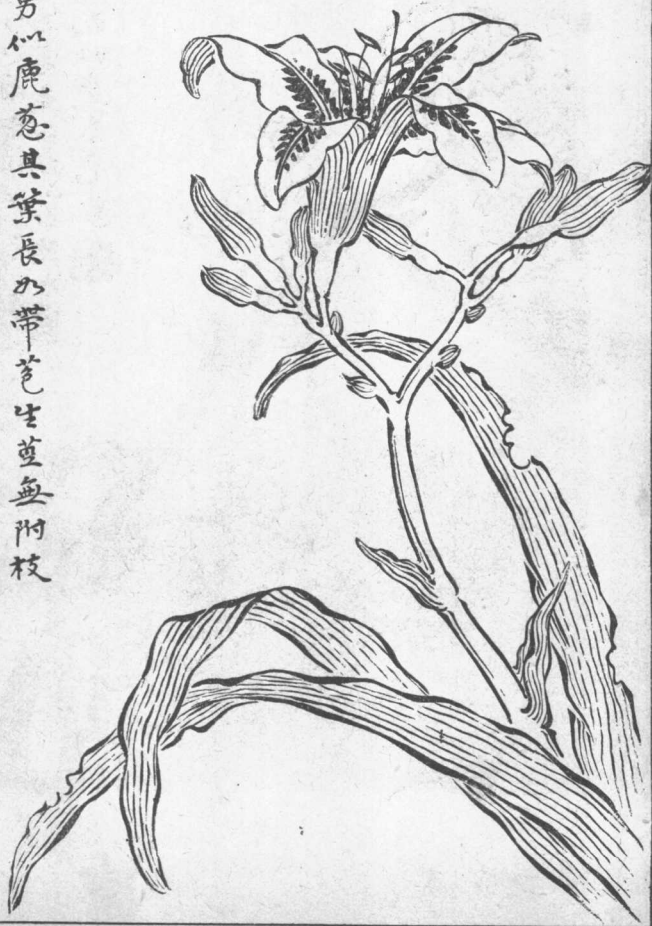 似鹿葱其葉長如帶苞生莖無附枝